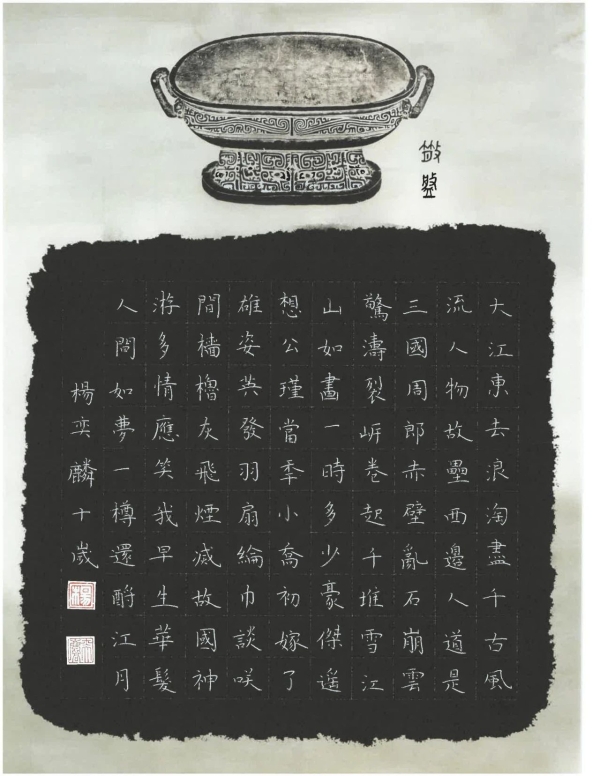 大江東去浪淘盡千古風
流人物故壘西邊人道是
三國周郎赤壁亂石崩雲
驚濤裂岍卷起千堆雪江
山如畫一時多少豪傑遙
想公瑾當秊小喬初嫁了
雄姿英發羽扇綸巾談咲
間檣櫓灰飛煙滅故國神
游多情應笑我早生華髮
人間如夢一樽還酹江月
楊奕麟十歲
楊